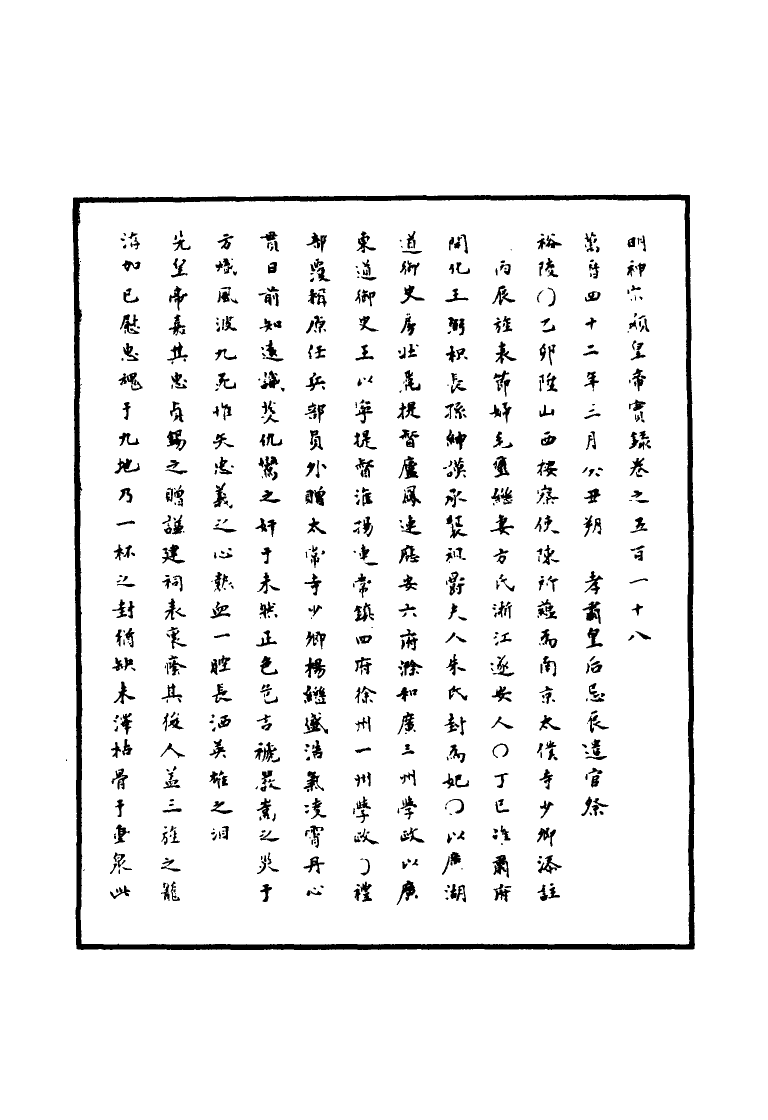 明神宗顯皇帝實錄卷之五百一十八
萬曆四十二年三月癸丑朔　孝肅皇后忌辰遣官祭
裕陵○乙卯陞山西按察使陳所蘊為南京太僕寺少卿添註
丙辰旌表節婦毛璽繼妻方氏浙江遂安人○丁巳准肅府
開化王弼枳長孫紳謨承襲祖爵夫人朱氏封為妃○以廣湖
道御史房壯麗提督廬鳳連應安六府滁和廣三州學政以廣
東道御史王以寧提督淮揚連常鎮四府徐州一州學政○禮
部覆輯原任兵部員外贈太常寺少卿楊繼盛浩氣凌霄丹心
貫日前知遠識焚仇鸞之奸于未然正色危言褫嚴嵩之炎于
方熾風波九死惟矢忠義之心熱血一腔長洒英雄之泪
先皇帝嘉其忠貞錫之贈謚建祠表裏廕其後人盖三旌之龍
洊加已慰忠魂于九地乃一杯之封猶缺未澤枯骨于重泉此